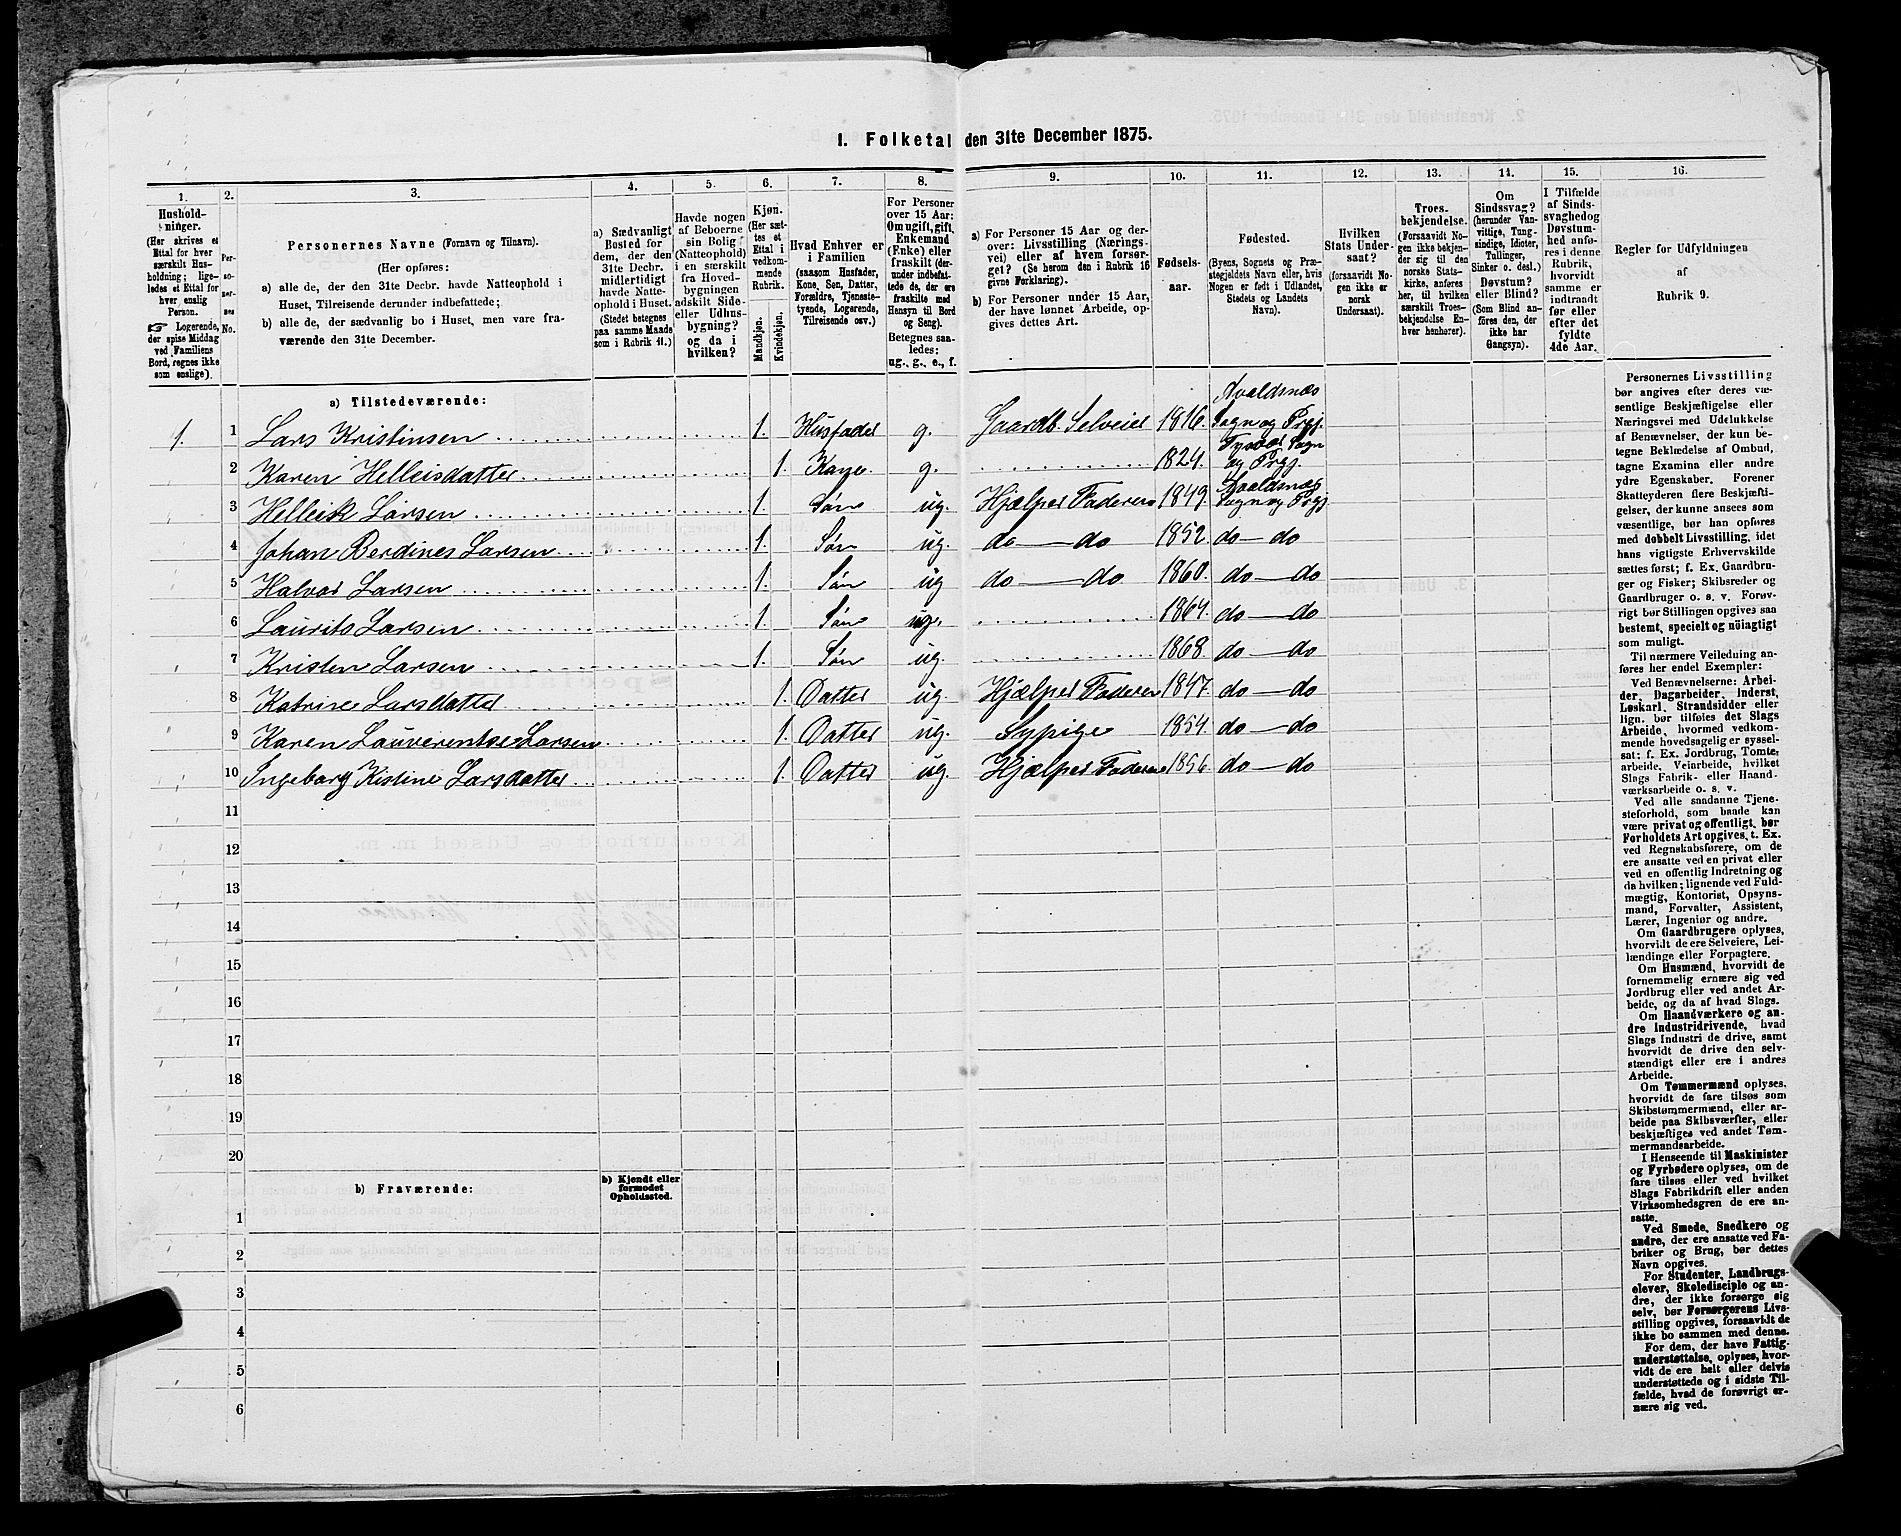 1. Folketal den 31te December 1875.
1. 2. 3. 4. 5. 6. 7. 8. 9. 10. 11. 12. 13. 14. 15. 16.
Hushold-
ninger.
(Her skrives et
Ettal for hver
særskilt Hus-
holdning; lige-
ledes et Ettal for
hver enslig
Person.
☞ Logerende,
der spise Middag
ved Familiens
Bord, regnes ikke
som enslige).
Per-
so-
ner-
nes
No.
Personernes Navne (Fornavn og Tilnavn).
(Her opføres:
a) alle de, der den 31te Decbr. havde Natteophold i
Huset, Tilreisende derunder indbefattede;
b) alle de, der sædvanlig bo i Huset, men vare fra-
værende den 31te December.
a) Sædvanligt
Bosted for
dem, der den
31te Decbr.
midlertidigt
havde Natte-
ophold i Huset.
(Stedet betegnes
paa samme Maade
som i Rubrik 11.)
Havde nogen
af Beboerne
sin Bolig
(Natteophold)
i en særskilt
fra Hoved-
bygningen
adskilt Side-
eller Udhus-
bygning?
og da i
hvilken?
Kjøn.
(Her sæt-
tes et
Ettal i
vedkom-
mende
Rubrik.
Mandkjøn.
Kvindekjøn.
Hvad Enhver er
i Familien
(saasom Husfader,
Kone, Søn, Datter,
Forældre, Tjeneste-
tyende, Logerende,
Tilreisende osv.)
For Personer
over 15 Aar:
Om ugift, gift,
Enkemand
(Enke) eller
fraskilt (der-
under indbefat-
tede de, der ere
fraskilte med
Hensyn til Bord
og Seng).
Betegnes saa-
ledes:
ug., g., e., f.
a) For Personer 15 Aar og der-
over: Livsstilling (Nærings-
vei) eller af hvem forsør-
get? (Se herom den i Rubrik 16
givne Forklaring).
b) For Personer under 15 Aar,
der have lønnet Arbeide, op-
gives dettes Art.
Fødsels-
aar.
Fødested.
(Byens, Sognets og Præ-
stegjeldets Navn eller, hvis
Nogen er født i Udlandet,
Stedets og Landets
Navn).
Hvilken
Stats Under-
saat?
(forsaavidt No-
gen ikke er
norsk
Undersaat).
Troes-
bekjendelse.
(Forsaavidt No-
gen ikke bekjen-
der sig til den
norske Stats-
kirke, anføres
her, til hvilken
særskilt Troes-
bekjendelse En-
hver henhører).
Om
Sindssvag?
(herunder Van-
vittige, Tung-
sindige, Idioter,
Tullinger,
Sinker o. desl.)
Døvstum?
eller Blind?
(Som Blind an-
føres den, der
ikke har
Gangsyn).
I Tilfælde
af Sinds-
svaghed og
Døvstum-
hed anfø-
res i denne
Rubrik,
hvorvidt
samme er
indtraadt
før eller
efter det
fyldte
4de Aar.
Regler for Udfyldningen
af
Rubrik 9.
a) Tilstedeværende:
1. 1 Lars Kristinsen 1. Husfader g. Gaardb. Selveier 1816. Avaldsnæs Sogn og Prgj.
2 Karen Helleisdatter 1. Kone. g. 1824. Tysvær Sogn og Prgj.
3 Helleik Larsen 1. Søn ug. Hjælper Faderen 1849. Avaldsnæs Sogn og Prgj
4 Johan Berdines Larsen 1. Søn ug. do — do 1852. do — do
5 Halvor Larsen 1. Søn ug do — do 1860. do — do
6 Laurits Larsen 1. Søn ug. 1864. do — do
7 Kristen Larsen 1. Søn ug. 1868. do — do
8 Katrine Larsdatter 1. Datter ug. Hjælper Faderen 1847. do — do
9 Karen Lauverentse Larsen 1. Datter ug. Sypige 1854. do — do
10 Ingeborg Kistine Larsdatter 1. Datter ug. Hjælper Faderen 1856. do — do
11
12
13
14
15
16
17
18
19
20
b) Fraværende:
b) Kjendt eller
formodet
Opholdssted.
1
2
3
4
5
6
Personernes Livsstilling
bør angives efter deres væ-
sentlige Beskjæftigelse eller
Næringsvei med Udelukkelse
af Benævnelser, der kun be-
tegne Beklædelse af Ombud,
tagne Examina eller andre
ydre Egenskaber. Forener
Skatteyderen flere Beskjæfti-
gelser, der kunne ansees som
væsentlige, bør han opføres
med dobbelt Livsstilling, idet
hans vigtigste Erhvervskilde
sættes først; f. Ex. Gaardbru-
ger og Fisker; Skibsreder og
Gaardbruger o. s. v. Forøv-
rigt bør Stillingen opgives saa
bestemt, specielt og nöiagtigt
som muligt.
Til nærmere Veiledning an-
føres her endel Exempler:
Ved Benævnelserne: Arbei-
der, Dagarbeider, Inderst,
Løskarl, Strandsidder eller
lign. bør tilføies det Slags
Arbeide, hvormed vedkom-
mende hovedsagelig er syssel-
sat; f. Ex. Jordbrug, Tomte-
arbeide, Veiarbeide, hvilket
Slags Fabrik- eller Haand-
værksarbeide o. s. v.
Ved alle saadanne Tjene-
steforhold, som baade kan
være privat og offentligt, bør
Forholdets Art opgives, t. Ex.
ved Regnskabsførere, om de
ere ansatte ved en privat eller
ved en offentlig Indretning og
da hvilken; lignende ved Fuld-
mægtig, Kontorist, Opsyns-
mand, Forvalter, Assistent,
Lærer, Ingeniør og andre.
Om Gaardbrugere oplyses,
hvorvidt de ere Selveiere, Lei-
lændinge eller Forpagtere.
Om Husmænd, hvorvidt de
fornemmelig ernære sig ved
Jordbrug eller ved andet Ar-
beide, og da af hvad Slags.
Om Haandværkere og an-
dre Industridrivende, hvad
Slags Industri de drive, samt
hvorvidt de drive den selv-
stændigt eller ere i andres
Arbeide.
Om Tømmermænd oplyses,
hvorvidt de fare tilsøs som
Skibstømmermænd, eller ar-
beide paa Skibsværfter, eller
beskjæftiges ved andet Tøm-
mermandsarbeide.
I Henseende til Maskinister
og Fyrbødere oplyses, om de
fare tilsøs eller ved hvilket
Slags Fabrikdrift eller anden
Virksomhedsgren de ere an-
satte.
Ved Smede, Snedkere og
andre, der ere ansatte ved Fa-
briker og Brug, bør dettes
Navn opgives.
For Studenter, Landbrugs-
elever, Skoledisciple og an-
dre, der ikke forsørge sig
selv, bør Forsørgerens Livs-
stilling opgives, forsaavidt de
ikke bo sammen med denne.
For dem, der have Fattig-
understøttelse, oplyses, hvor-
vidt de ere helt eller delvis
understøttede og i sidste Til-
fælde, hvad de forøvrigt er-
nære sig ved.